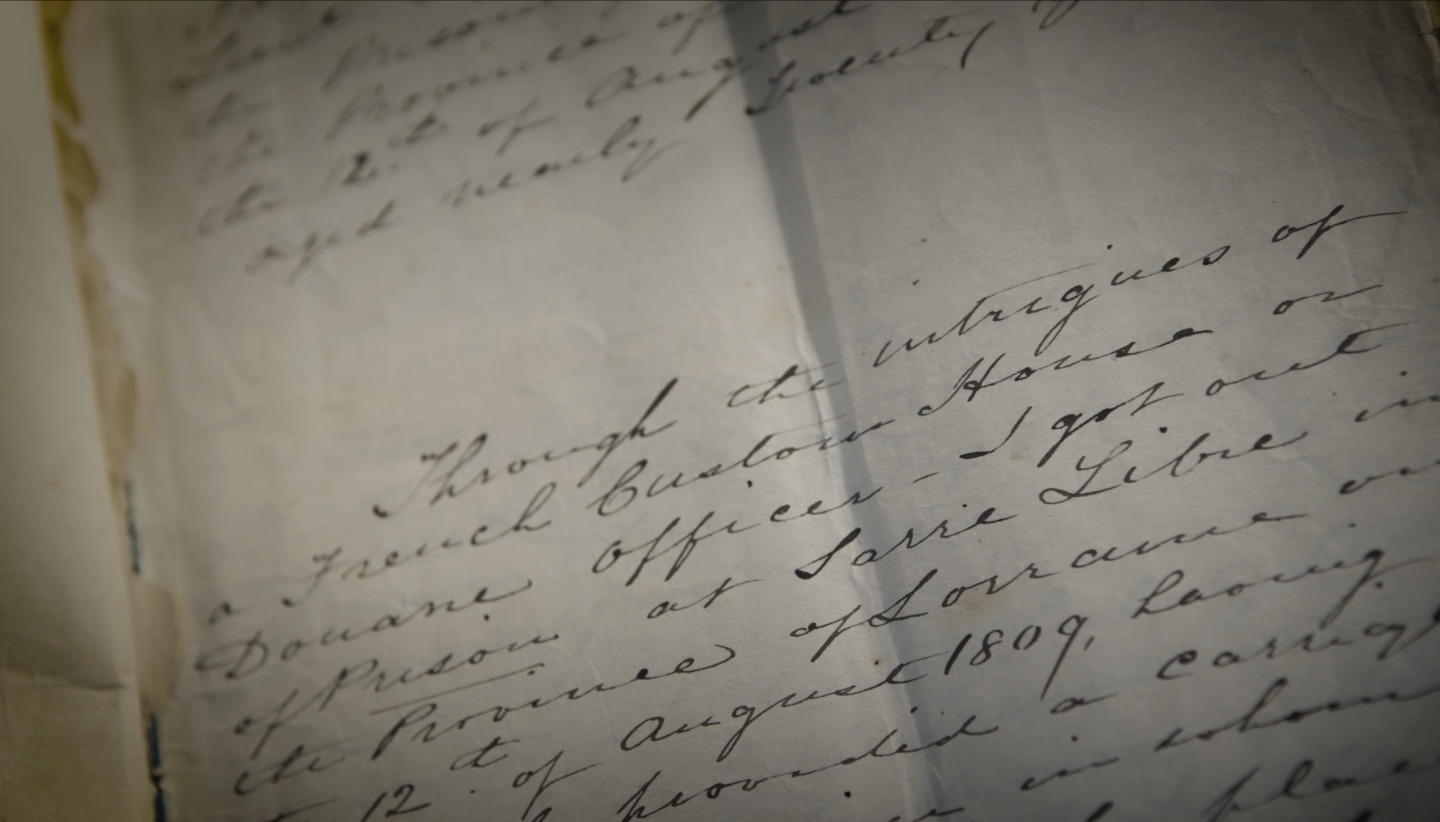 the Province of
the 12th of August
aged nearly Twenty
Through the intrigues of
a French Custom House or
Douane officer - I got out
of Prison at Sarre Libre in
the Province of Lorraine on
12th of August 1809, having
provided a carriage
in whom